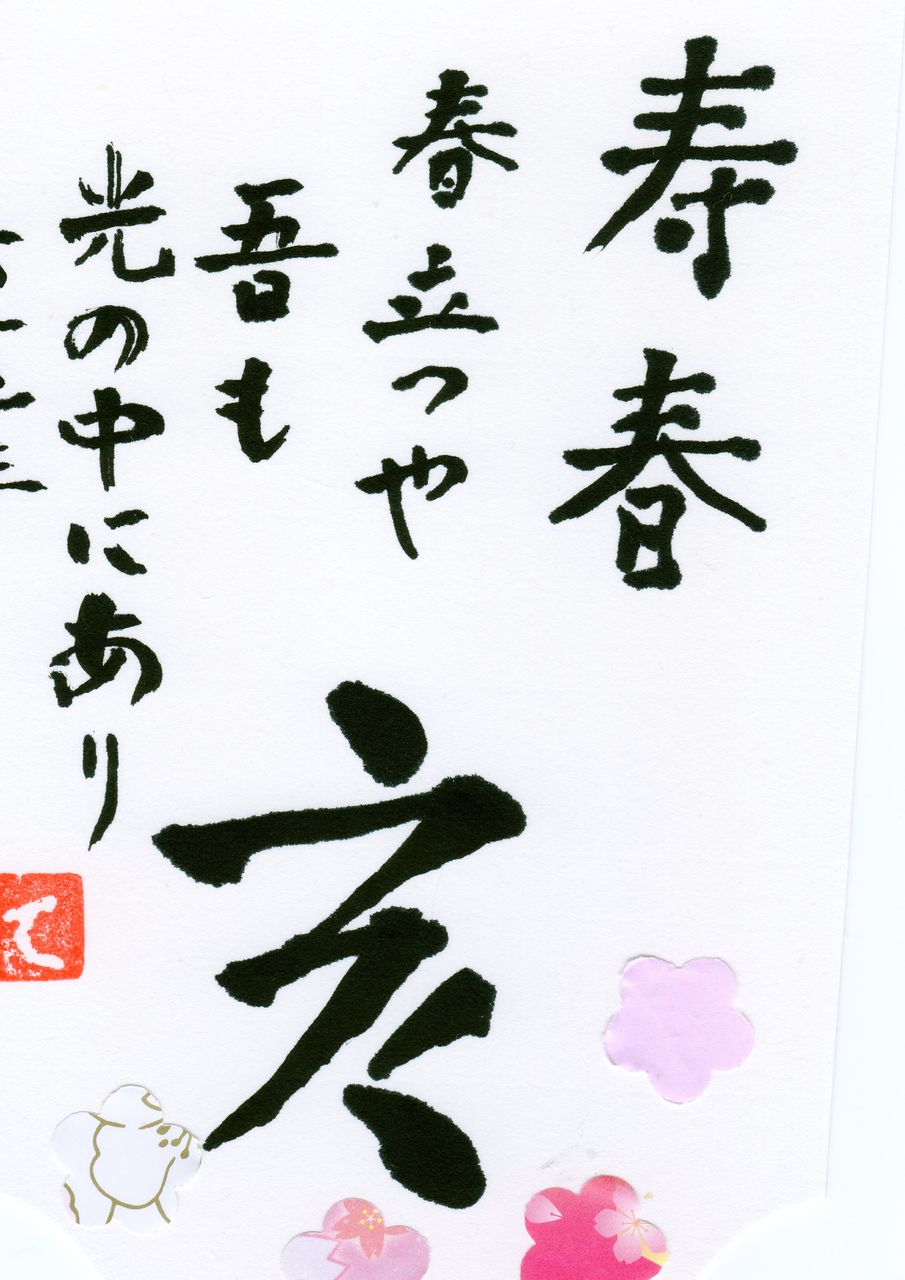 寿春
春立つや
吾も
光の中にあり
亥
て